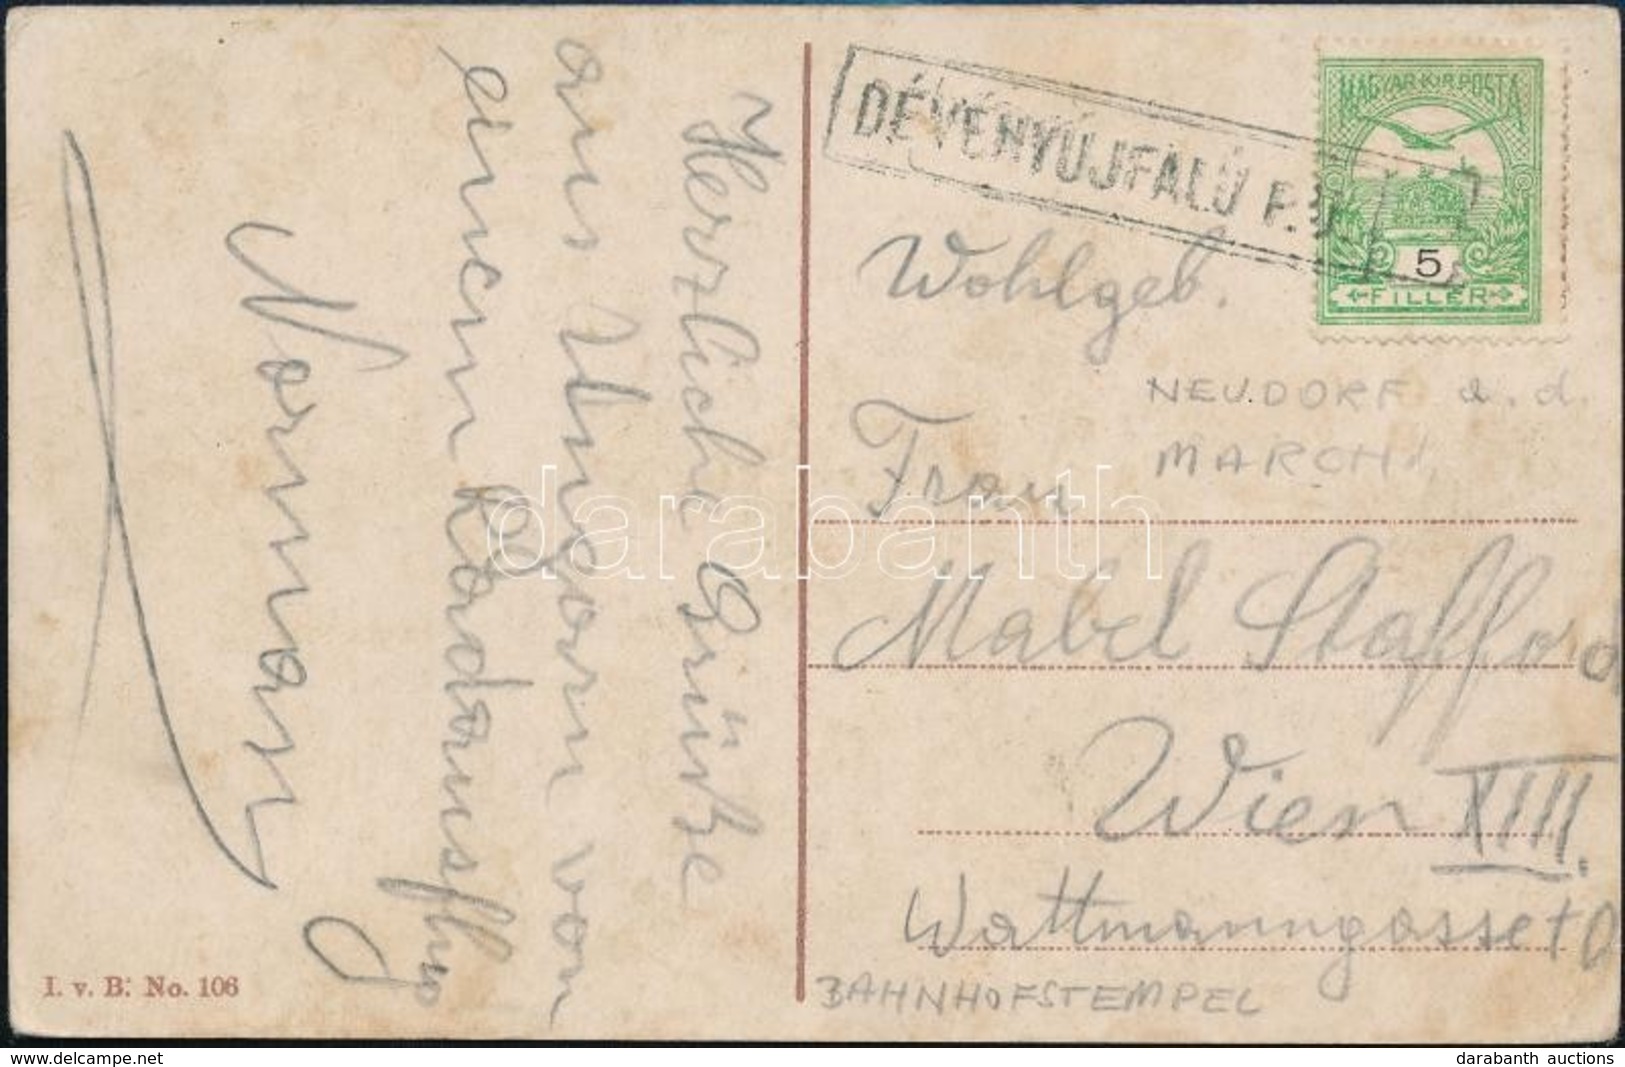 Herzliche Grüße
aus Ungarn von
einem Radausflug
Norman
I. v. B. No. 106
DÉVÉNYUJFALU P.U.
MAGYAR KIR. POSTA
5
FILLER
Wohlgeb.
NEUDORF a. d.
MARCH
Frau
Mabel Stafford
Wien XIII.
Wattmanngasse
BAHNHOFSTEMPEL
darabanth
www.delcampe.net
darabanth auctions